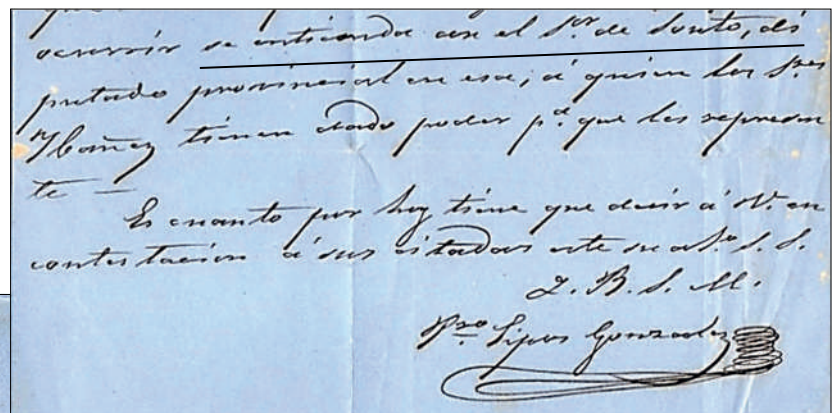 ocurrir se entienda con el Sor. de Souto, di
putado provincial en esa, á quien los Sres
Ybañez tienen dado poder pa. que los represen
te —
Es cuanto por hoy tiene que decir á V. en
contestacion á sus citadas este su afmo. S. S.
Q. B. S. M.
Gonzalez